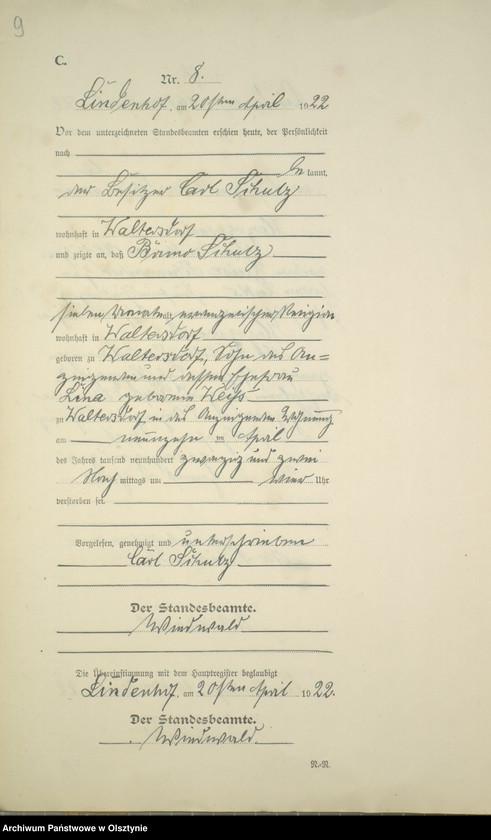 9
C.
Nr. 8.
Lindenhof, am 20sten April 1922
Vor dem unterzeichneten Standesbeamten erschien heute, der Persönlichkeit
nach
be kannt,
der Besitzer Carl Schulz
wohnhaft in Waltersdorf
und zeigte an, daß Bruno Schulz
sieben Monate alt, evangelischer Religion
wohnhaft in Waltersdorf
geboren zu Waltersdorf, Sohn des An=
zeigenden und dessen Ehefrau
Lina geborenen Weiß
zu Waltersdorf in des Anzeigenden Wohnung
am neunzehn ten April
des Jahres tausend neunhundert zwanzig und zwei
Nach mittags um vier Uhr
verstorben sei.
Vorgelesen, genehmigt und unterschrieben
Carl Schulz
Der Standesbeamte.
Windwald
Die Übereinstimmung mit dem Hauptregister beglaubigt
Lindenhof, am 20sten April 1922.
Der Standesbeamte.
Windwald.
Archiwum Państwowe w Olsztynie